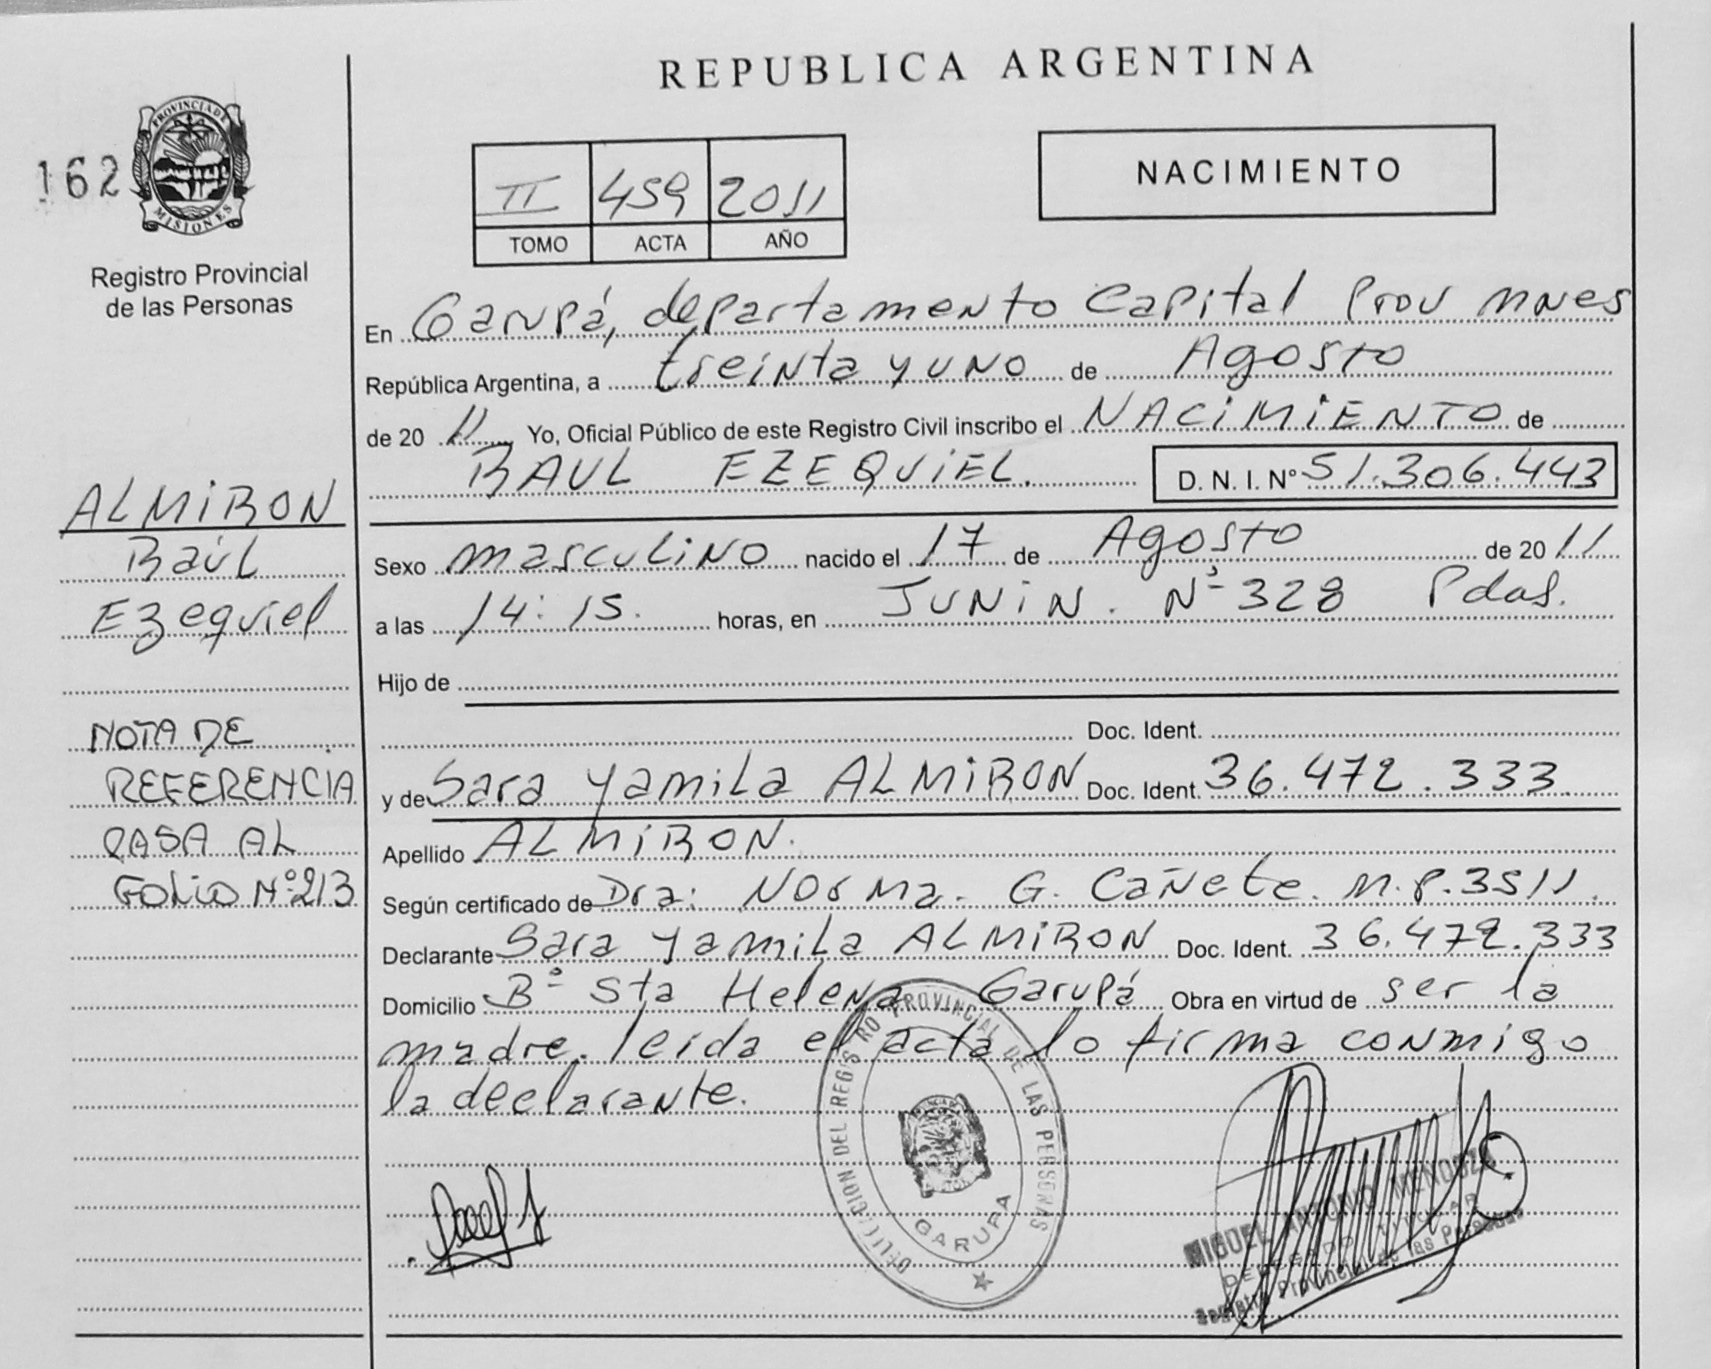 REPUBLICA ARGENTINA
162
PROVINCIA DE
MISIONES
Registro Provincial
de las Personas
II 459 2011
TOMO ACTA AÑO
NACIMIENTO
En Garupá, departamento Capital Prov mnes
República Argentina, a treinta y uno de Agosto
de 20 11 Yo, Oficial Público de este Registro Civil inscribo el NACIMIENTO de
RAUL EZEQUIEL. D. N. I. N° 51.306.443
ALMIRON
Raúl
Ezequiel
Sexo masculino nacido el 17 de Agosto de 20 11
a las 14:15. horas, en JUNIN. Nº 328 Pdas.
Hijo de
Doc. Ident.
y de Sara Yamila ALMIRON Doc. Ident. 36.472.333
Apellido ALMIRON.
Según certificado de Dra: Norma. G. Cañete. M.P. 3511.
Declarante Sara Yamila ALMIRON Doc. Ident. 36.472.333
Domicilio Bº Sta Helena Garupá Obra en virtud de ser la
madre. leida el acta lo firma conmigo
la declarante.
NOTA DE
REFERENCIA
PASA AL
FOLIO Nº 213
PROVINCIAL DE LAS PERSONAS
GARUPA
MIGUEL ANTONIO MENDOZA
DELEGADO TITULAR
Registro Provincial de las Personas